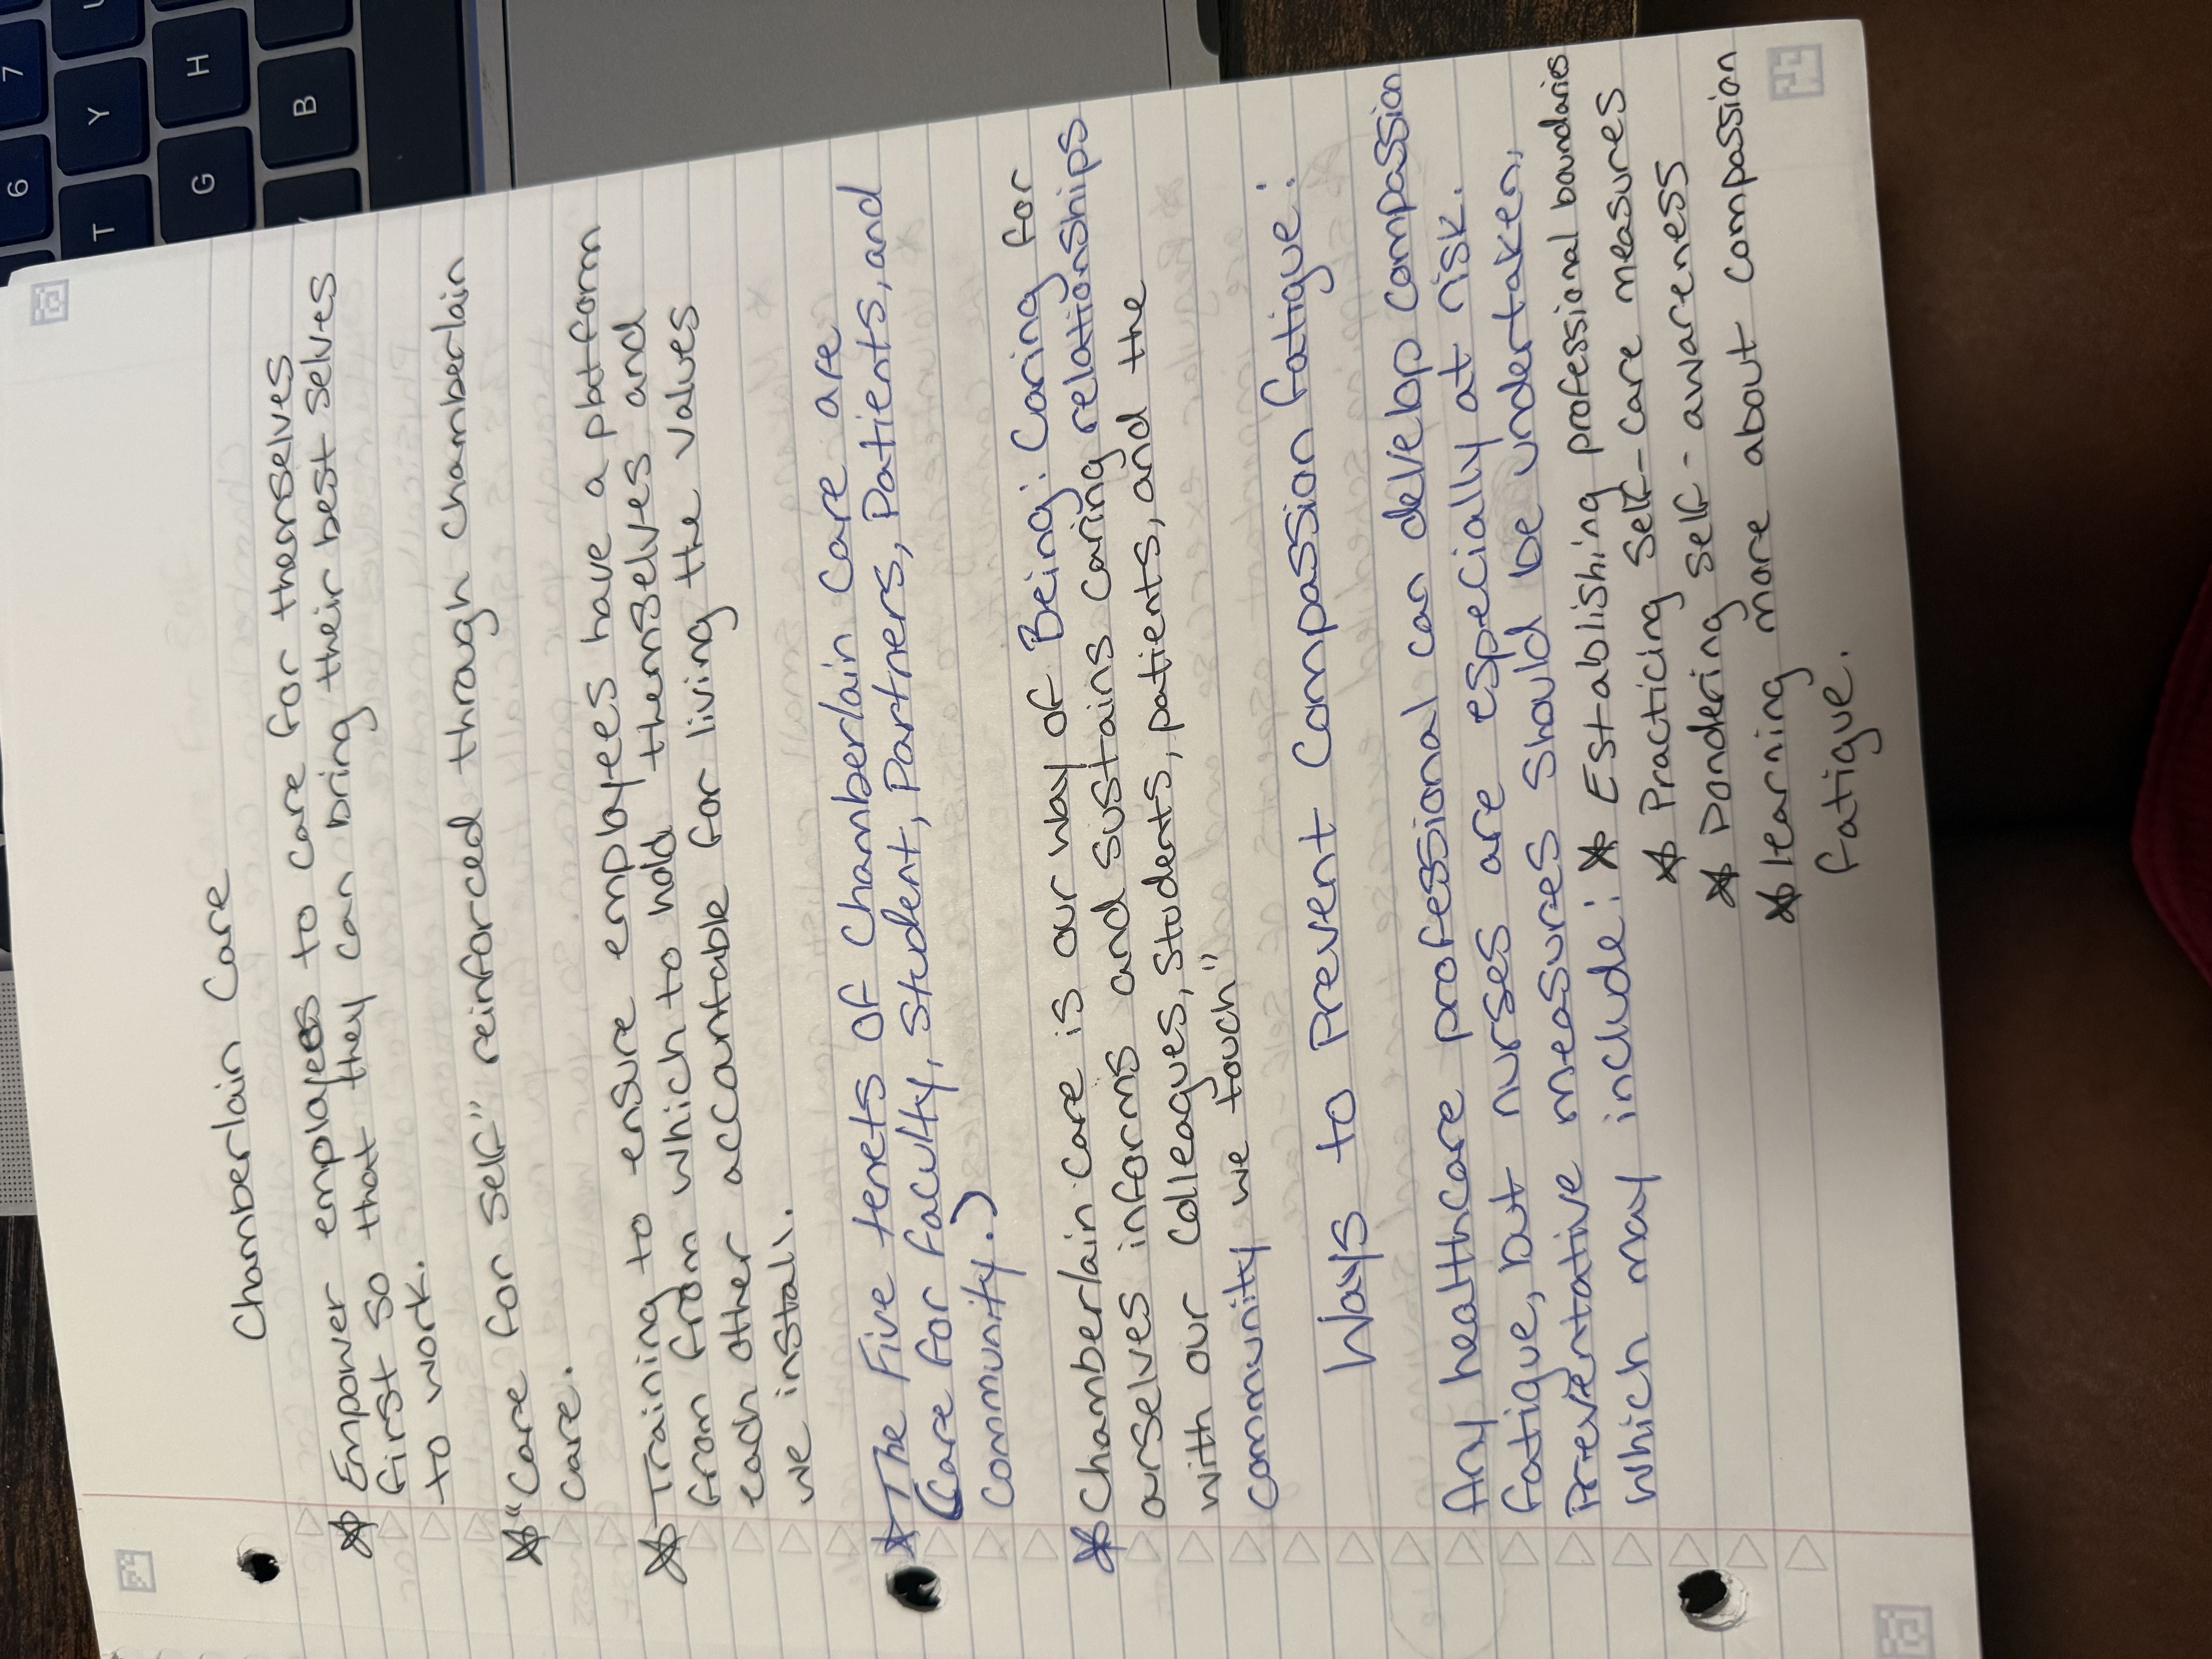 Chamberlain Care
* Empower employees to care for themselves
first so that they can bring their best selves
to work.
* "Care for Self" reinforced through Chamberlain
care.
* Training to ensure employees have a platform
from from which to hold themselves and
each other accountable for living the values
we install.
* The Five tenets of Chamberlain Care are
(Care for faculty, Student, Partners, Patients, and
community.)
* Chamberlain Care is our way of Being: Caring for
ourselves informs and sustains caring relationships
with our colleagues, students, patients, and the
community we touch"
Ways to Prevent Compassion fatigue:
Any healthcare professional can develop compassion
fatigue, but nurses are especially at risk.
Preventative measures should be undertaken,
which may include: * Establishing professional boundaries
* Practicing Self-care measures
* Pondering self-awareness
* learning more about compassion
fatigue.
6
7
T
Y
G
H
B